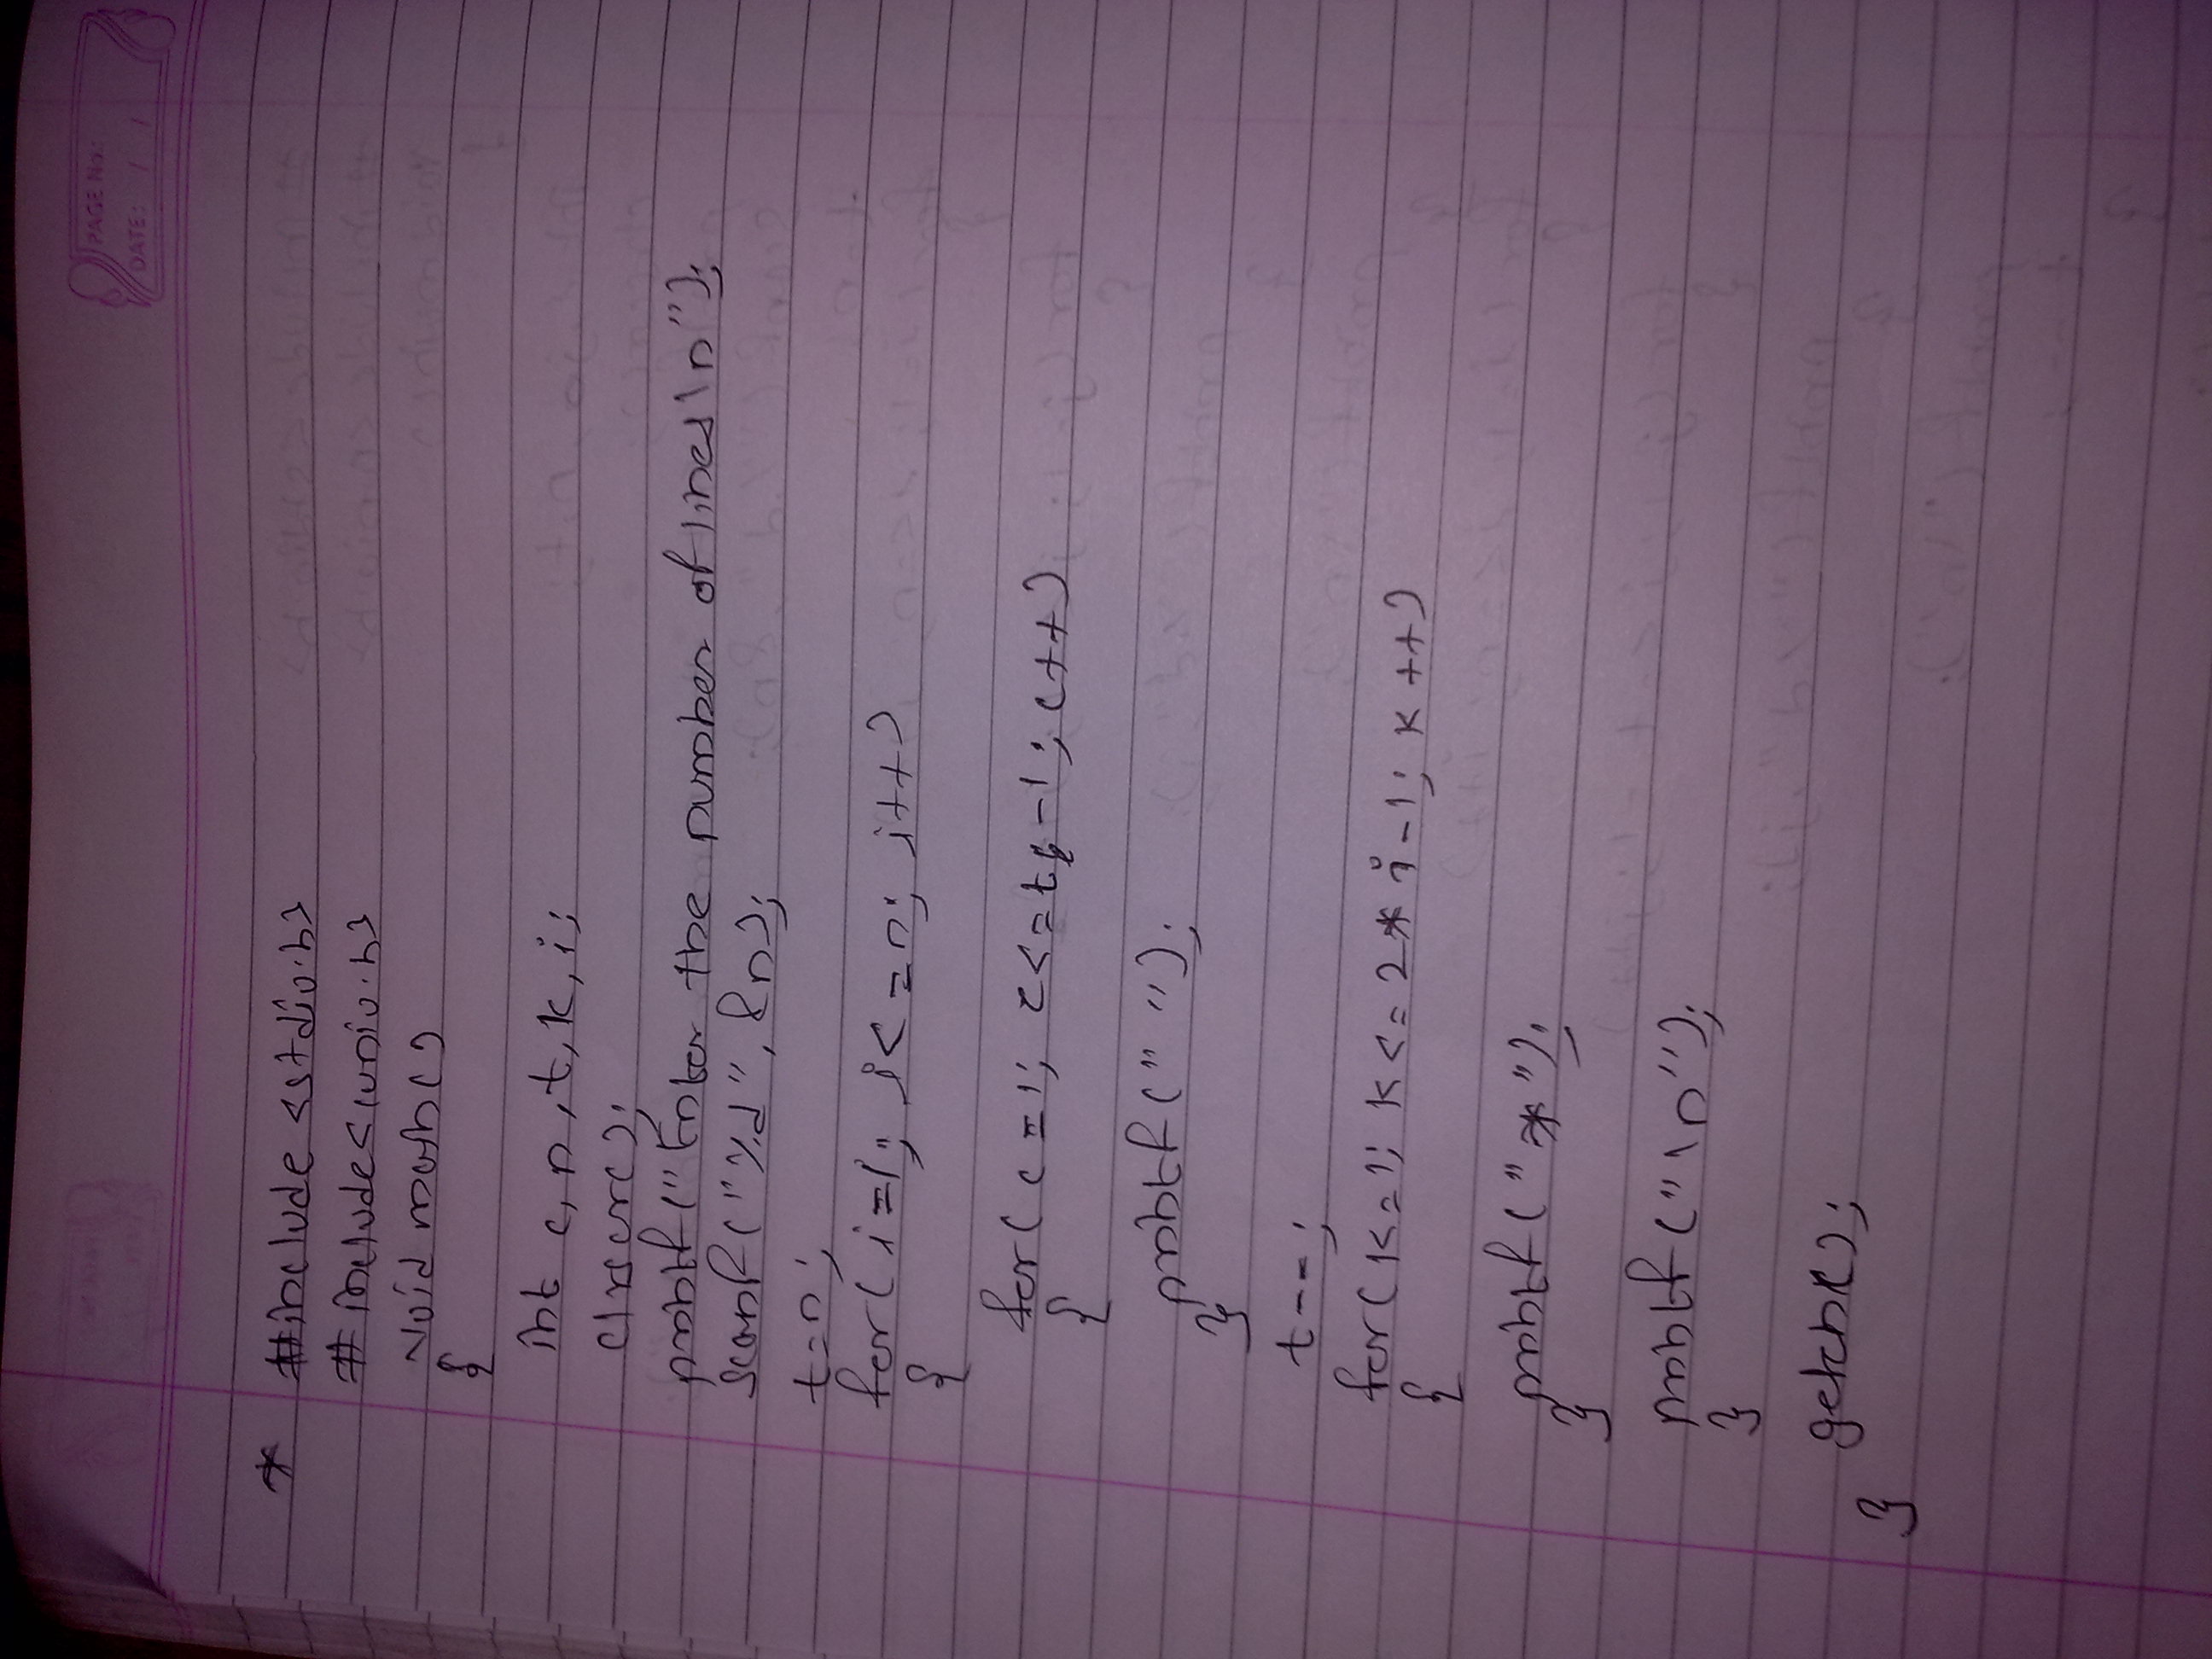 PAGE No.:
DATE: / /
* #include <stdio.h>
#include <conio.h>
void main()
{
int c, n, t, k, i;
clrscr();
printf("Enter the number of lines\n");
scanf("%d", &n);
t=n;
for(i=1; i<=n; i++)
{
for(c=1; c<=t-1; c++)
{
printf(" ");
}
t--;
for(k=1; k<=2*i-1; k++)
{
printf("*");
}
printf("\n");
}
getch();
}